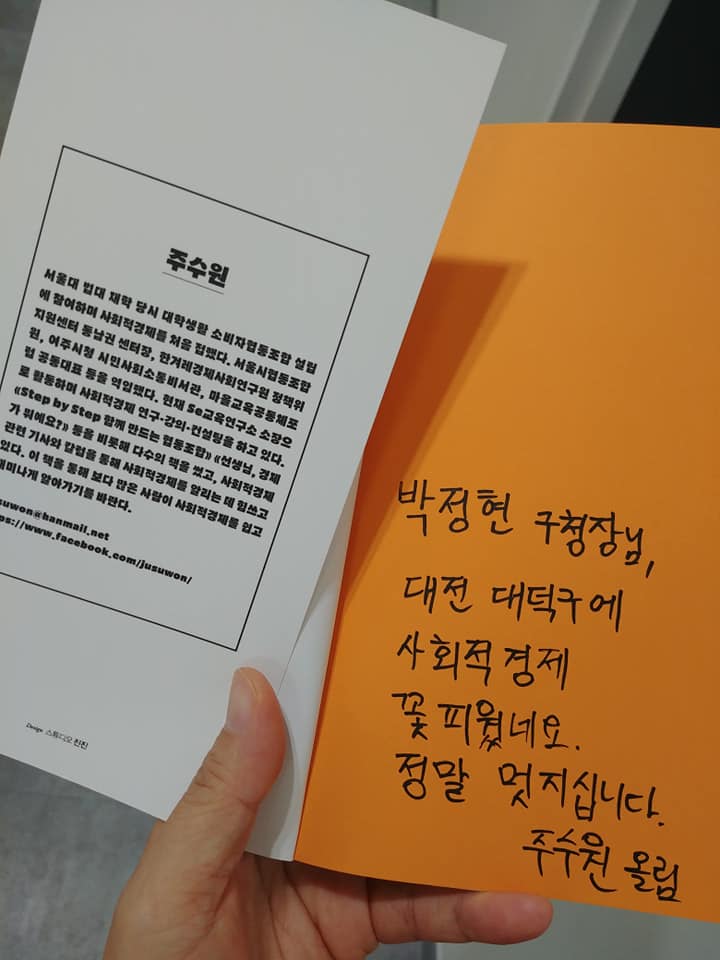 주수원
서울대 법대 재학 당시 대학생활 소비자협동조합 설립
에 참여하며 사회적경제를 처음 접했다. 서울시협동조합
지원센터 동남권 센터장, 한겨레경제사회연구원 정책위
원, 여주시청 시민사회소통비서관, 마을교육공동체포
럼 공동대표 등을 역임했다. 현재 Se교육연구소 소장으
로 활동하며 사회적경제 연구·강의·컨설팅을 하고 있다.
《Step by Step 함께 만드는 협동조합》 《선생님, 경제
가 뭐예요?》 등을 비롯해 다수의 책을 썼고, 사회적경제
관련 기사와 칼럼을 통해 사회적경제를 알리는 데 힘쓰고
있다. 이 책을 통해 보다 많은 사람이 사회적경제를 쉽고
재미나게 알아가기를 바란다.
suwon@hanmail.net
ps://www.facebook.com/jusuwon/
Design 스튜디오 진진
박정현 구청장님,
대전 대덕구에
사회적경제
꽃 피웠네요.
정말 멋지십니다.
주수원 올림